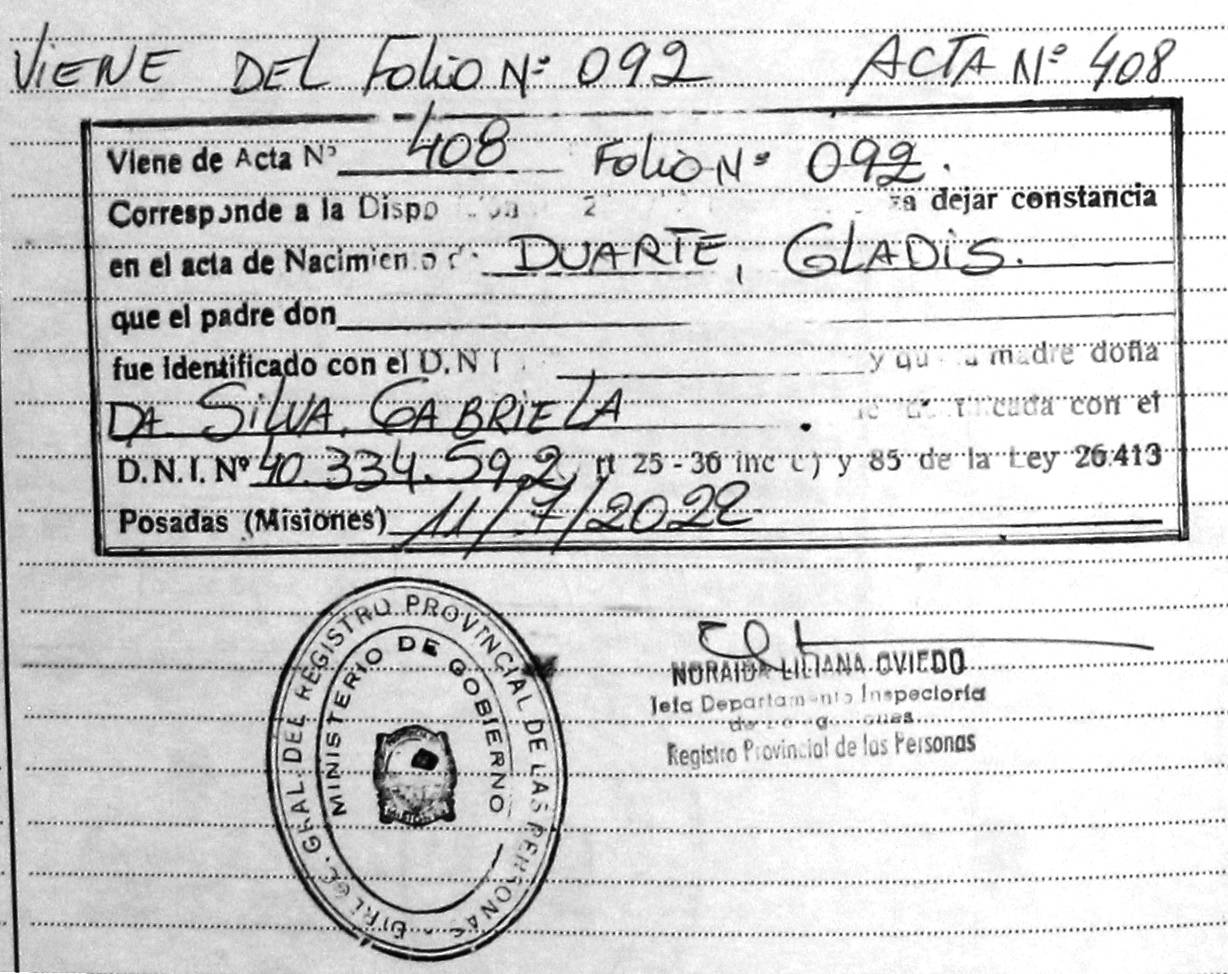 VIENE DEL FOLIO Nº 092 ACTA Nº 408
Viene de Acta Nº 408 FOLIO Nº 092.
Corresponde a la Dispo 2 dejar constancia
en el acta de Nacimiento DUARTE, GLADIS.
que el padre don
fue identificado con el D.N.I. y que la madre doña
DA SILVA, GABRIELA con el
D.N.I. Nº 40.334.592, rt 25 - 36 inc c) y 85 de la Ley 26.413
Posadas (Misiones) 11/7/2022
DIREC. GRAL. DEL REGISTRO PROVINCIAL DE LAS PERSONAS
MINISTERIO DE GOBIERNO
NORAIDA LILIANA OVIEDO
Jefa Departamento Inspectoría
Registro Provincial de las Personas